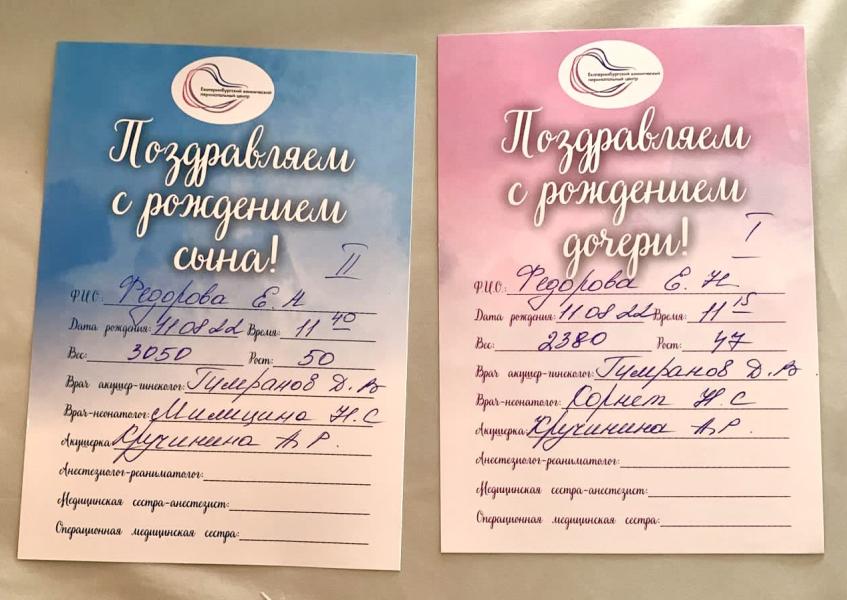 Екатеринбургский клинический
перинатальный центр
Поздравляем
с рождением
сына!
II
Ф.И.О.: Федорова Е. Н
Дата рождения: 11 08 22 Время: 11 40
Вес: 3050 Рост: 50
Врач акушер-гинеколог: Гумранов Д. В
Врач-неонатолог: Милицина Н. С
Акушерка: Кручинина А. Р.
Анестезиолог-реаниматолог:
Медицинская сестра-анестезист:
Операционная медицинская сестра:
Екатеринбургский клинический
перинатальный центр
Поздравляем
с рождением
дочери!
I
Ф.И.О.: Федорова Е. Н
Дата рождения: 11 08 22 Время: 11 15
Вес: 2380 Рост: 47
Врач акушер-гинеколог: Гумранов Д. В
Врач-неонатолог: Н. С
Акушерка: Кручинина А. Р.
Анестезиолог-реаниматолог:
Медицинская сестра-анестезист:
Операционная медицинская сестра: